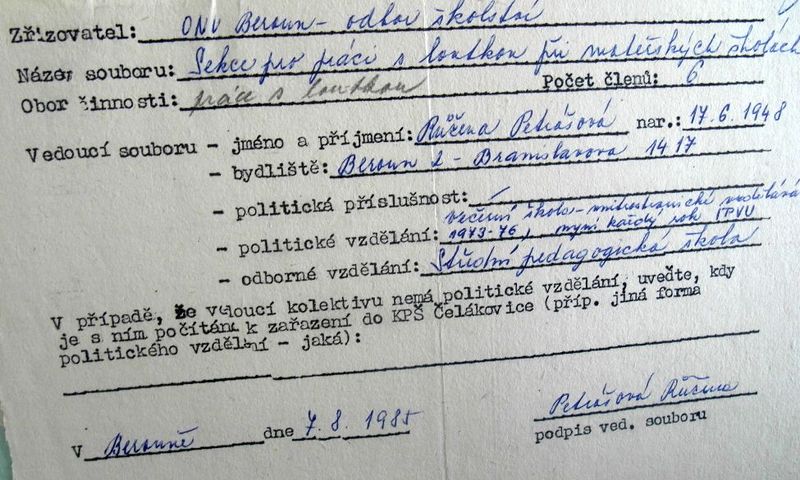 Zřizovatel: ONV Beroun - odbor školství
Název souboru: Sekce pro práci s loutkou při mateřských školách
Obor činnosti: práce s loutkou Počet členů: 6
Vedoucí souboru - jméno a příjmení: Růžena Petrášová nar.: 17.6.1948
- bydliště: Beroun 2 - Branislavova 1417
- politická příslušnost: -
večerní škola - vnitrostranické vzdělává
- politické vzdělání: 1973-76, nyní každý rok IPVU
- odborné vzdělání: Střední pedagogická škola
V případě, že vedoucí kolektivu nemá politické vzdělání, uveďte, kdy
je s ním počítáno k zařazení do KPŠ Čelákovice (příp. jiná forma
politického vzdělání - jaká):
V Berouně dne 7.8.1985
Petrášová Růžena
podpis ved. souboru